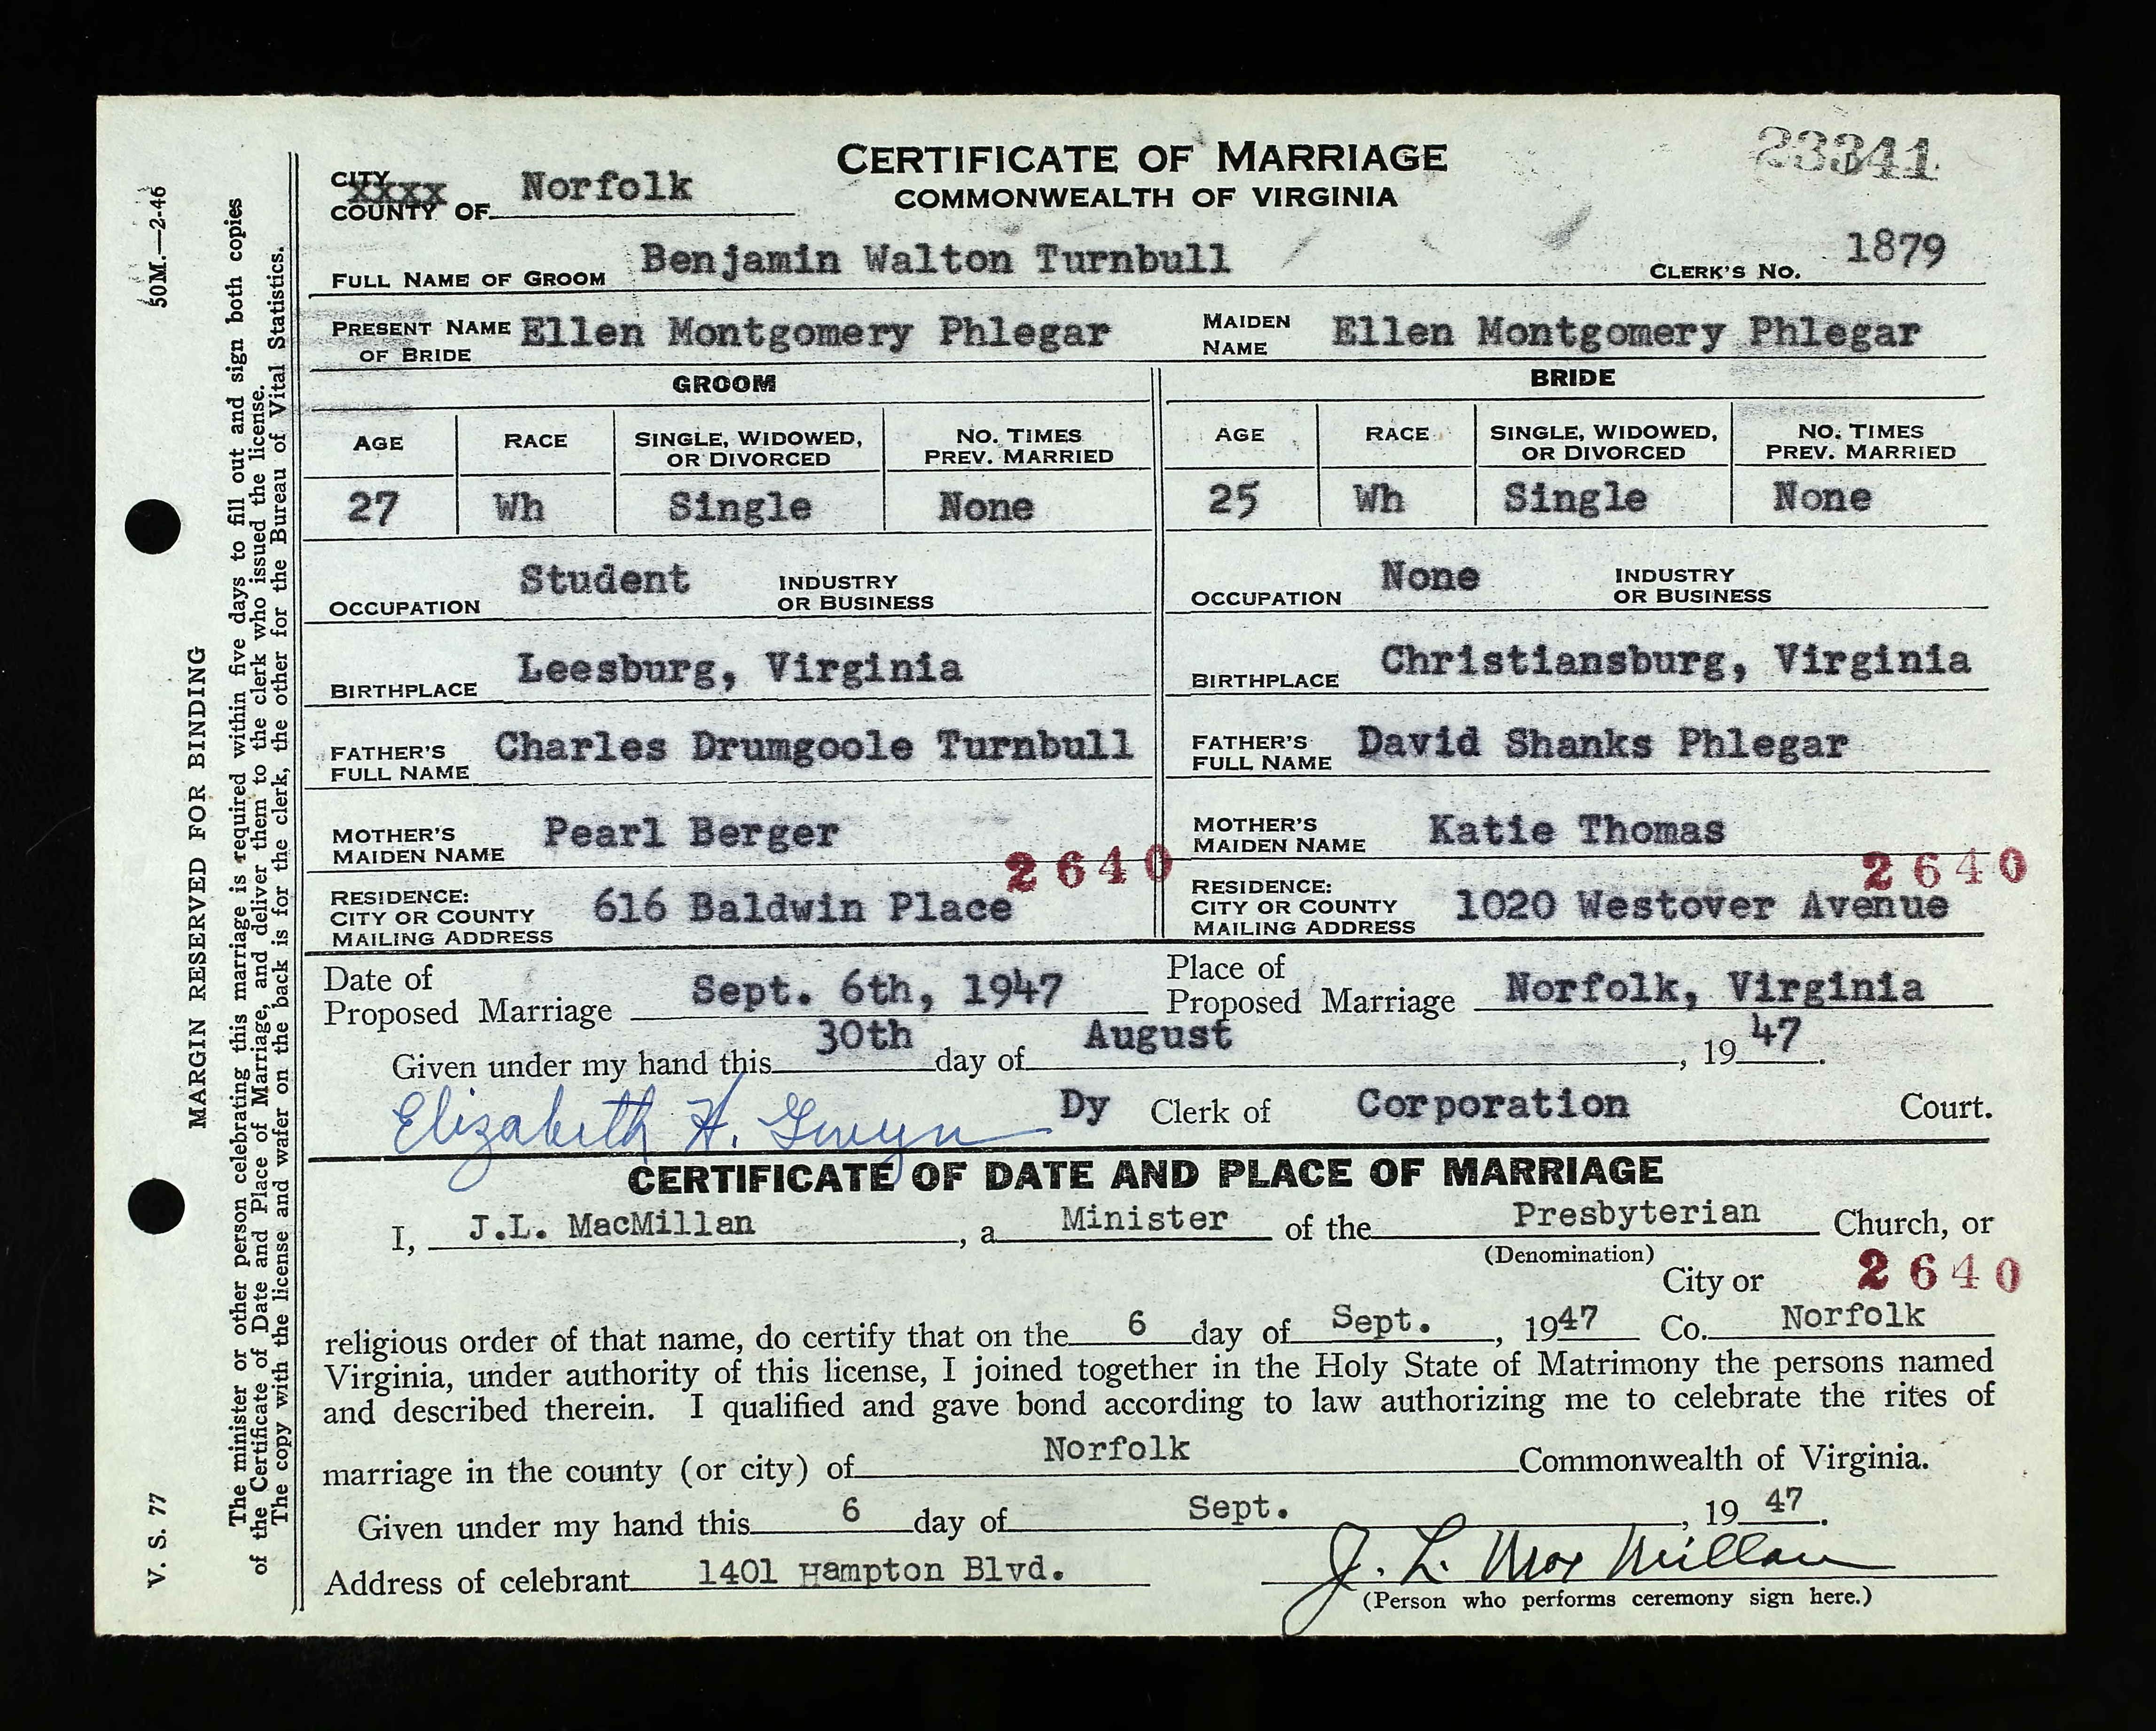 50M.—2-46
MARGIN RESERVED FOR BINDING
V. S. 77
The minister or other person celebrating this marriage is required within five days to fill out and sign both copies
of the Certificate of Date and Place of Marriage, and deliver them to the clerk who issued the license.
The copy with the license and wafer on the back is for the clerk, the other for the Bureau of Vital Statistics.
CERTIFICATE OF MARRIAGE
COMMONWEALTH OF VIRGINIA
23341
CITY
XXXX
COUNTY OF Norfolk
FULL NAME OF GROOM Benjamin Walton Turnbull CLERK'S NO. 1879
PRESENT NAME OF BRIDE Ellen Montgomery Phlegar MAIDEN NAME Ellen Montgomery Phlegar
GROOM BRIDE
AGE RACE SINGLE, WIDOWED, OR DIVORCED NO. TIMES PREV. MARRIED AGE RACE SINGLE, WIDOWED, OR DIVORCED NO. TIMES PREV. MARRIED
27 Wh Single None 25 Wh Single None
OCCUPATION Student INDUSTRY OR BUSINESS OCCUPATION None INDUSTRY OR BUSINESS
BIRTHPLACE Leesburg, Virginia BIRTHPLACE Christiansburg, Virginia
FATHER'S FULL NAME Charles Drumgoole Turnbull FATHER'S FULL NAME David Shanks Phlegar
MOTHER'S MAIDEN NAME Pearl Berger MOTHER'S MAIDEN NAME Katie Thomas
2640 2640
RESIDENCE: CITY OR COUNTY MAILING ADDRESS 616 Baldwin Place RESIDENCE: CITY OR COUNTY MAILING ADDRESS 1020 Westover Avenue
Date of Proposed Marriage Sept. 6th, 1947 Place of Proposed Marriage Norfolk, Virginia
Given under my hand this 30th day of August, 1947.
Elizabeth H. Gwyn Dy Clerk of Corporation Court.
CERTIFICATE OF DATE AND PLACE OF MARRIAGE
I, J.L. MacMillan, a Minister of the Presbyterian Church, or
(Denomination)
City or 2640
religious order of that name, do certify that on the 6 day of Sept., 1947 Co. Norfolk
Virginia, under authority of this license, I joined together in the Holy State of Matrimony the persons named
and described therein. I qualified and gave bond according to law authorizing me to celebrate the rites of
marriage in the county (or city) of Norfolk Commonwealth of Virginia.
Given under my hand this 6 day of Sept., 19 47.
Address of celebrant 1401 Hampton Blvd. J. L. MacMillan
(Person who performs ceremony sign here.)